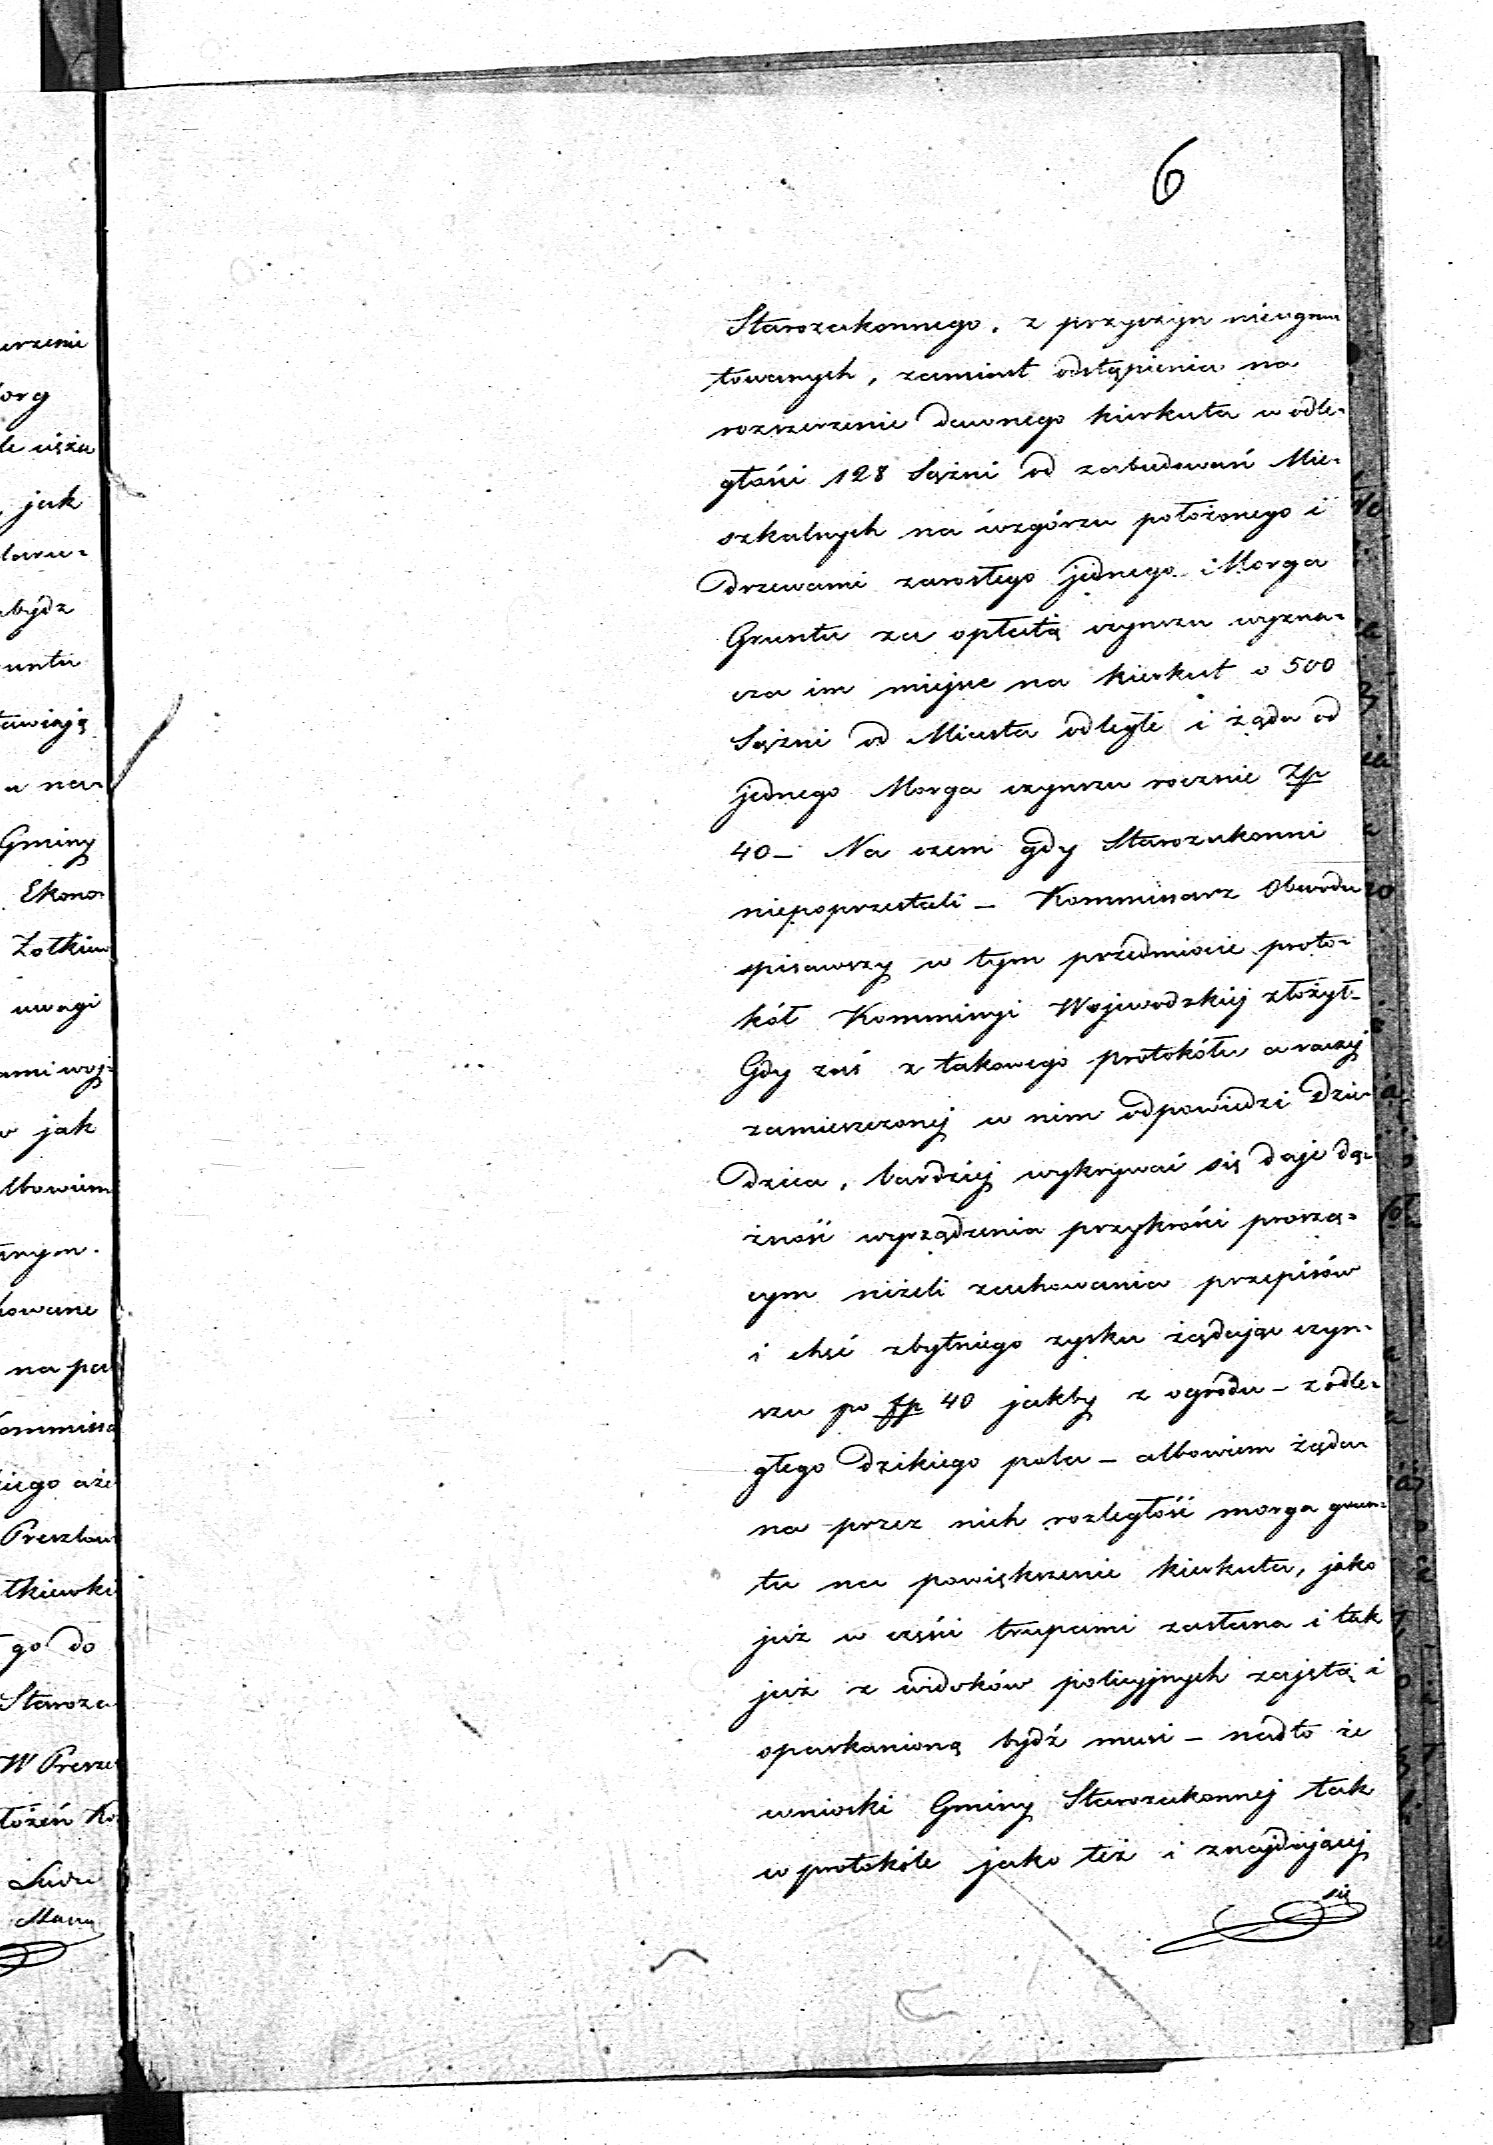 6
Starozakonnego, z przyczyn nieugrun
towanych, zamiast odstąpienia na
rozszerzenie dawnego kierkuta w odle-
głości 128 Sążni od zabudowań Mie-
szkalnych na wzgórzu położonego i
drzewami zarosłego jednego Morga
Gruntu za opłatą czynszu wyzna-
cza im miejsce na kierkut o 500
Sążni od Miasta odległe i żąda od
jednego Morga czynszu rocznie Zp
40 – Na czem gdy Starozakonni
niepoprzestali – Kommissarz Obwodu
spisawszy w tym przedmiocie proto-
kół Kommissyi Wojewodzkiej złożył –
Gdy zaś z takowego protokółu a raczej
zamieszczonej w nim odpowiedzi Dzie-
dzica, bardziej wykrywać się daje dą-
żność wyrządzenia przykrości proszą-
cym niżeli zachowania przepisów
i chęć zbytniego zysku żądając czyn-
szu po fp 40 jakby z ogrodu – z odle-
głego dzikiego pola – albowiem żąda-
na przez nich rozległość morga grun-
tu na powiększenie kierkuta, jako
już w części trupami zasłana i tak
już z widoków policyjnych zajętą i
oparkanioną bydź musi – nadto że
wnioski Gminy Starozakonnej tak
w protokóle jako też i znajdującej
się
erzenie
org
le ciężu
, jak
bydz
untu
tawiają
a na-
Gminy
Ekono-
Żołkiew
uwagi
ami woj-
w jak
lbowiem
anym.
kowane
na pa
ommissa
kiego aże
Preszlow
łkiewki
go do
Staroza
W Presze
łożeń Ko-